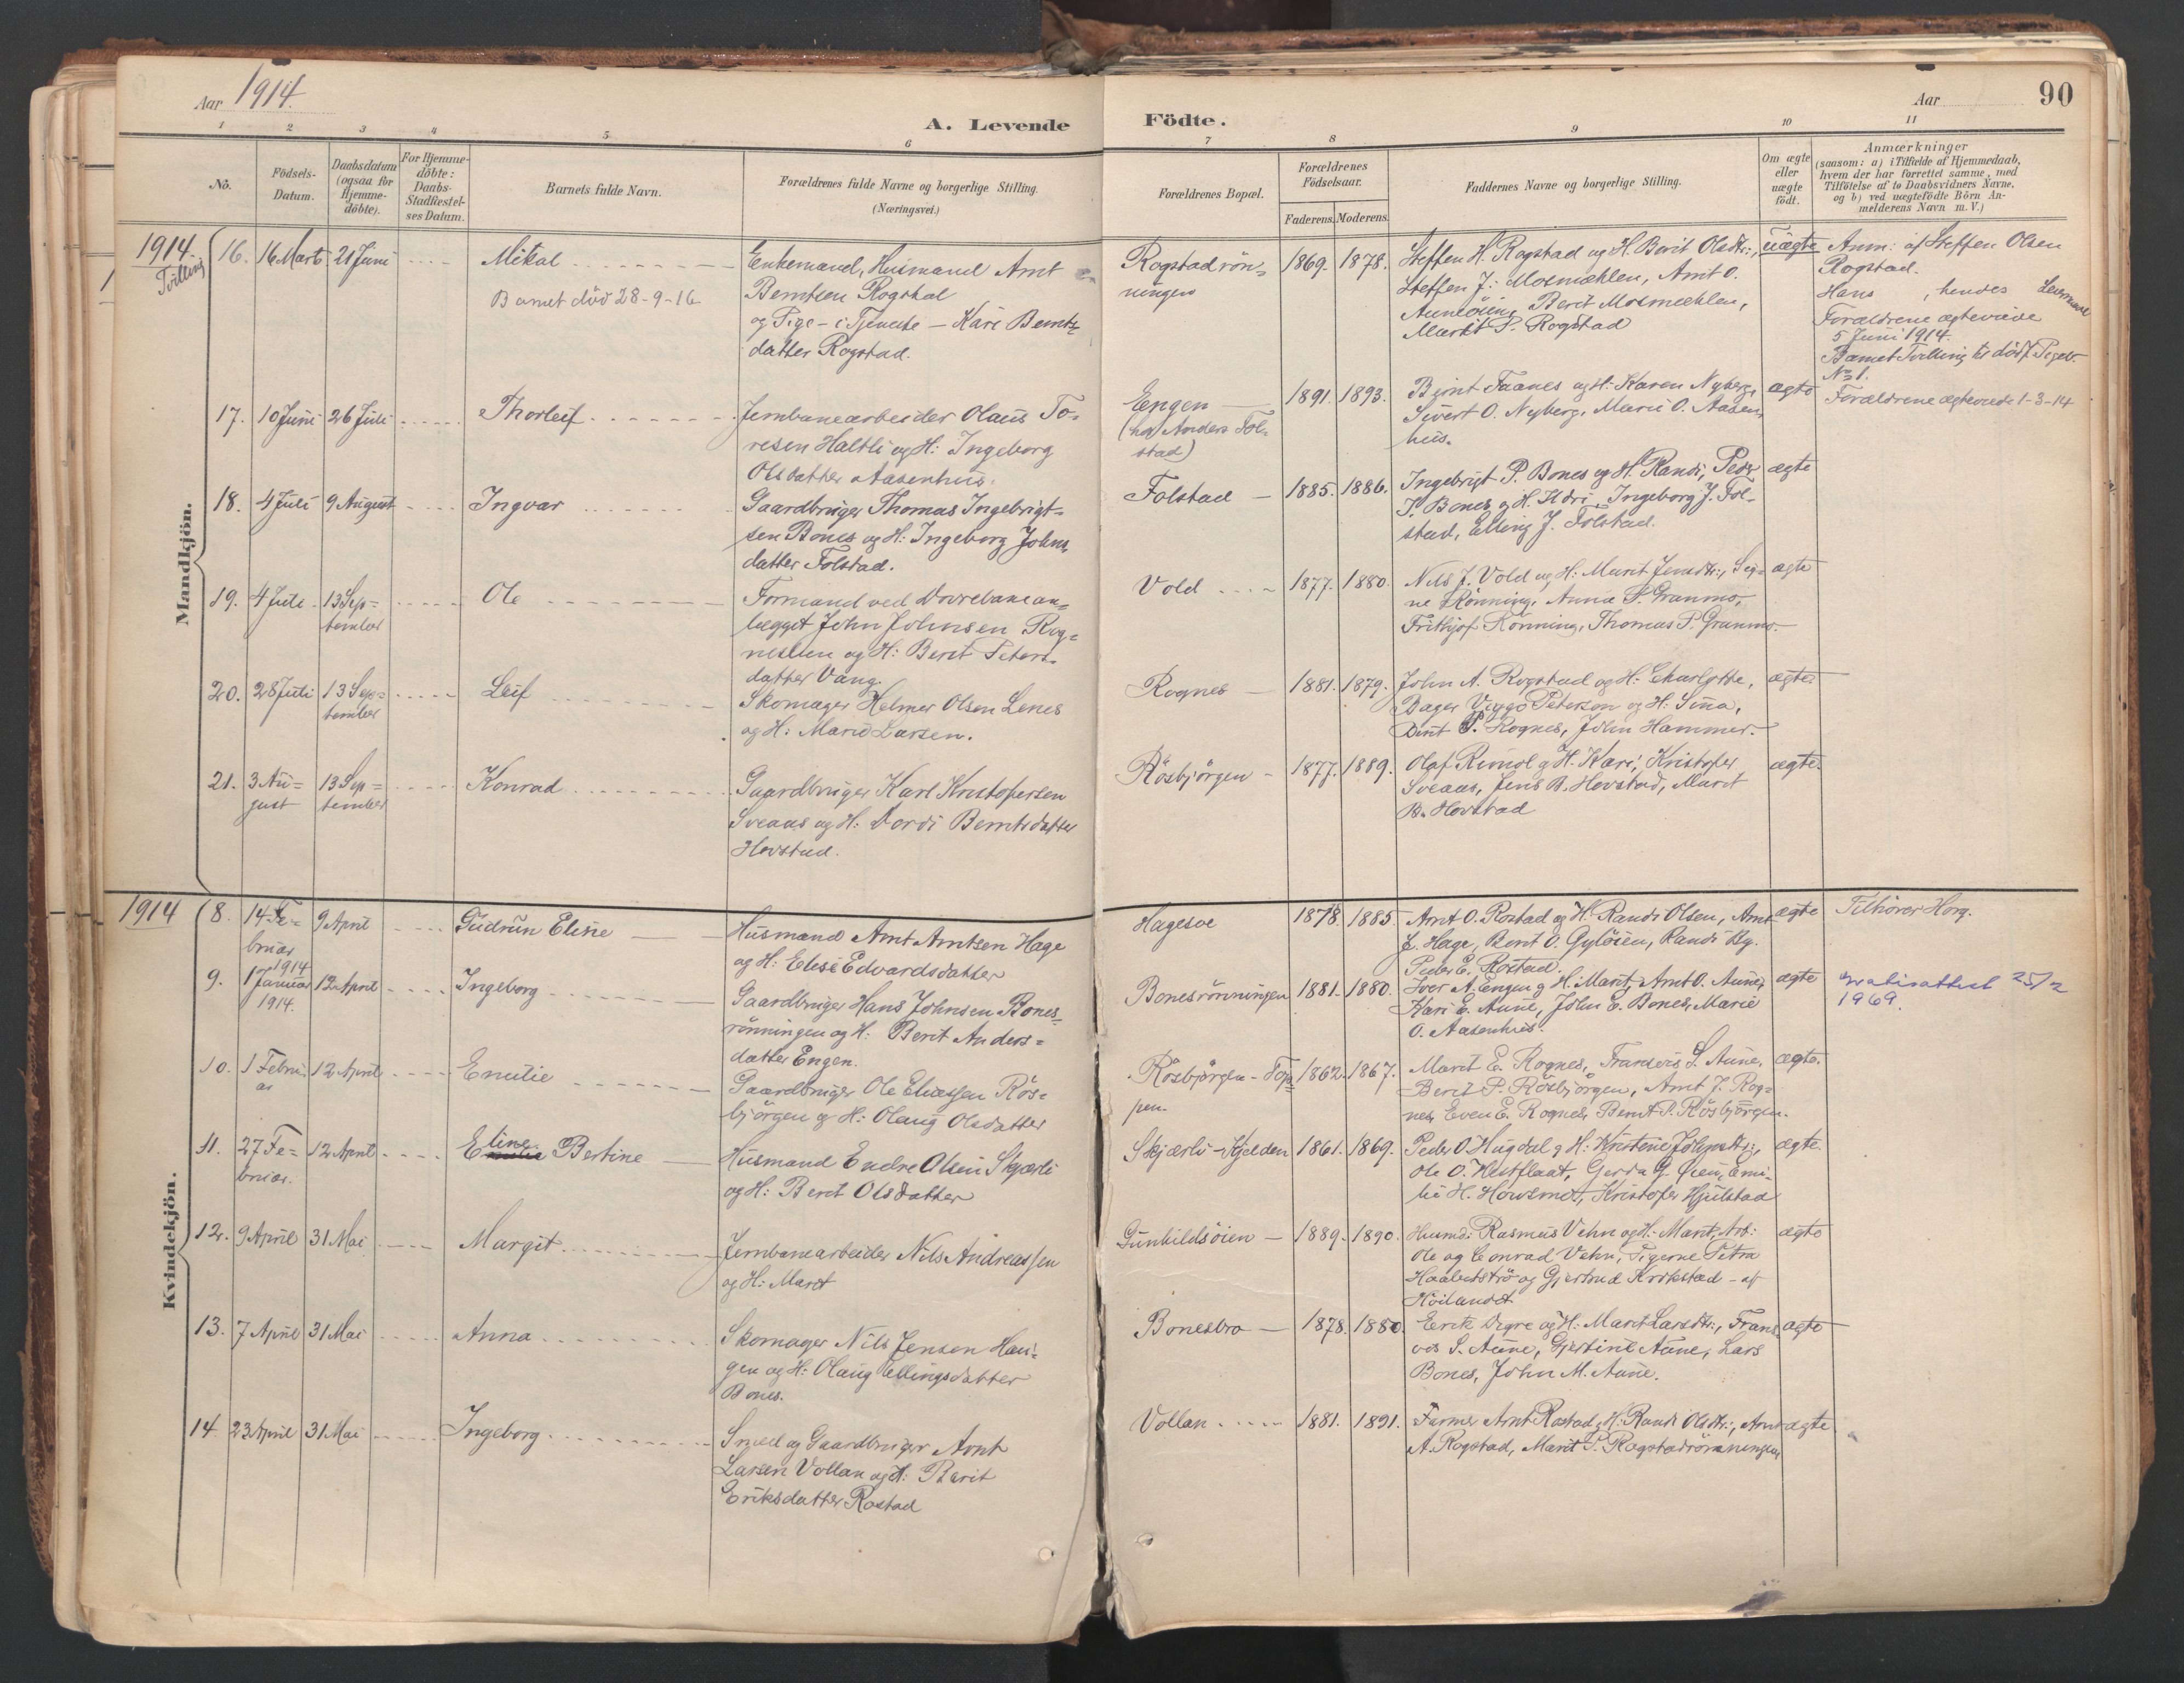 Aar 1914.
A. Levende
Födte.
Aar
90
1 2 3 4 5 6 7 8 9 10 11
No.
Födsels-
Datum.
Daabsdatum
(ogsaa for
Hjemme-
döbte).
For Hjemme-
döbte:
Daabs-
Stadfæstel-
ses Datum.
Barnets fulde Navn.
Forældrenes fulde Navne og borgerlige Stilling.
(Næringsvei.)
Forældrenes Bopæl.
Forældrenes
Födselsaar.
Faderens. Moderens.
Faddernes Navne og borgerlige Stilling.
Om ægte
eller
uægte
födt.
Anmærkninger
(saasom: a) i Tilfælde af Hjemmedaab,
hvem der har forrettet samme, med
Tilföielse af to Daabsvidners Navne,
og b) ved uægtefödte Börn An-
melderens Navn m. V.)
Mandkjön.
1914.
Tvilling
16. 16 Marts 21 Juni Mikal
Barnet död 28-9-16
Enkemand, Husmand Arnt
Berntsen Rogstad
og Pige - i Tjeneste - Kari Bernts-
datter Rogstad.
Rogstadrön-
ningen
1869. 1878.
Steffen H. Rogstad og H. Berit Olsdtr.,
Steffen J. Mosmæhlen, Arnt O.
Auneöien, Berit Mosmæhlen,
Marit P. Rogstad
uægte
Anm: af Steffen Olsen
Rogstad.
Hans , hendes
Forældrene ægteviede
5 Juni 1914.
Barnet Tvilling til dödf. Pigeb.
No 1.
17. 10 Juni 26 Juli Thorleif
Jernbanearbeider Olaus To-
resen Haltli og H: Ingeborg
Olsdatter Aasenhus.
Engen
(hos Anders Fol-
stad)
1891. 1893.
Bernt Faanes og H. Karen Nyberg,
Sivert O. Nyberg, Marie O. Aasen-
hus.
ægte
Forældrene ægteviede 1-3-14
18. 4 Juli 9 August Ingvar
Gaardbruger Thomas Ingebrigt-
sen Bones og H: Ingeborg Johns-
datter Folstad.
Folstad
1885. 1886.
Ingebrigt P. Bones og H. Randi, Peder
P. Bones og H. Ildri, Ingeborg J. Fol-
stad, Elling J. Folstad.
ægte
19. 4 Juli 13 Sep-
tember
Ole
Formand ved Dovrebanean-
lægget John Johnsen Rog-
neslien og H: Berit Peters-
datter Vang.
Vold
1877. 1880.
Nils J. Vold og H: Marit Jensdtr., Sig-
ne Rönning, Anna P. Granmo,
Frithjof Rönning, Thomas P. Granmo.
ægte
20. 28 Juli 13 Sep-
tember
Leif
Skomager Helmer Olsen Lenes
og H: Marie Larsen.
Rognes
1881. 1879.
John A. Rogstad og H: Charlotte,
Bager Viggo Peterson og H: Sina,
Arnt P. Rognes, John Hammer.
ægte.
21. 3 Au-
gust
13 Sep-
tember
Konrad
Gaardbruger Karl Kristofersen
Sveaas og H: Dordi Berntsdatter
Hovstad.
Rösbjörgen
1877. 1889.
Olaf Rimol og H. Kari, Kristofer
Sveaas, Jens B. Hovstad, Marit
B. Hovstad
ægte.
Kvindekjön.
1914
8. 14 Fe-
bruar
1914
9 April Gudrun Eline
Husmand Arnt Arntsen Hage
og H: Elise Edvardsdatter
Hagesve
1878. 1885.
Arnt O. Rostad og H. Randi Olsen, Arnt
J. Hage, Berit O. Gylöien, Randi Ky.
Peder E. Rostad.
ægte
Tilhörer Horg.
9. 1 Januar
1914.
12 April Ingeborg
Gaardbruger Hans Johnsen Bones-
rönningen og H: Berit Anders-
datter Engen.
Bonesrönningen
1881. 1880.
Iver A. Engen og H: Marit, Arnt O. Aune,
Kari E. Aune, John E. Bones, Marie
O. Aasenhus.
ægte
gratisattest 25/2
1969.
10. 1 Febru-
ar
12 April Emilie
Gaardbruger Ole Eliassen Rös-
björgen og H: Olaug Olsdatter
Rösbjörgen - Top-
pen.
1862. 1867.
Marit E. Rognes, Franseis S. Aune,
Berit P. Rösbjörgen, Arnt J. Rog-
nes, Even E. Rognes, Bernt P. Rösbjörgen.
ægte.
11. 27 Fe-
bruar.
12 April Eline Bertine
Husmand Endre Olsen Skjærli
og H: Berit Olsdatter
Skjærli - Kjelden
1861. 1869.
Peder O. Hugdal og H: Kristine Johnsdtr.,
Ole O. Hestflaat, Gerda G. Öien, Emi-
lie H. Howsmo, Kristofer Hjulstad
ægte.
12. 9 April 31 Mai Margit
Jernbanearbeider Nils Andreassen
og H: Marit
Gunhildsöien
1889. 1890.
Husmd: Rasmus Vehn og H: Marit, Arb:
Ole og Conrad Vehn, Pigerne Petra
Haabetströ og Gjertrud Krokstad - af
Höilandet
ægte
13. 7 April 31 Mai Anna
Skomager Nils Jensen Hau-
gen og H: Olaug Ellingsdatter
Bones.
Bonesbro
1878. 1880.
Erik Digre og H: Marit Larsdtr., Frans
S. Aune, Gjertine Aune, Lars
Bones, John M. Aune.
ægte
14. 23 April 31 Mai Ingeborg
Smed og Gaardbruger Arnt
Larsen Vollan og H: Berit
Eriksdatter Rostad
Vollan
1881. 1891.
Farmer Arnt Rostad, H: Randi Olsdtr., Arnt
A. Rogstad, Marit P. Rogstadrönningen
ægte.